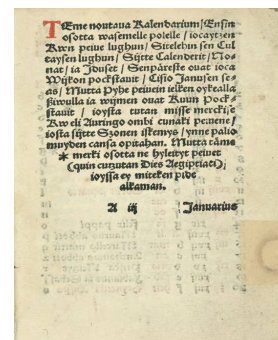 TEme noutaua Kalendarium/Ensin
osotta wasemelle polelle / iocaytzen
Kwn peiue lughun / Sitelehin sen Cul
eaysen lughun / Sijtte Calenderit / No-
nat / ia Iduset / Senpäreste ouat ioca
Wijkon pockstauit / Cisio Janusen se-
as / Mutta Pyhe peiuein ielken oykealla
siwulla ia wijmen ouat Kuun Pock-
stauit / ioysta tutan misse merckise
Kw eli Auringo ombi cunaki peiuene /
iosta sijtte Szonen iskemys / ynne palio
muyden cansa opitahan. Mutta täme
* merki osotta ne hyleityt peiuet
(quin cutzutan Dies Aegiptiaci)
ioyssa ey miteken pide
alkaman.
A iij Januarius